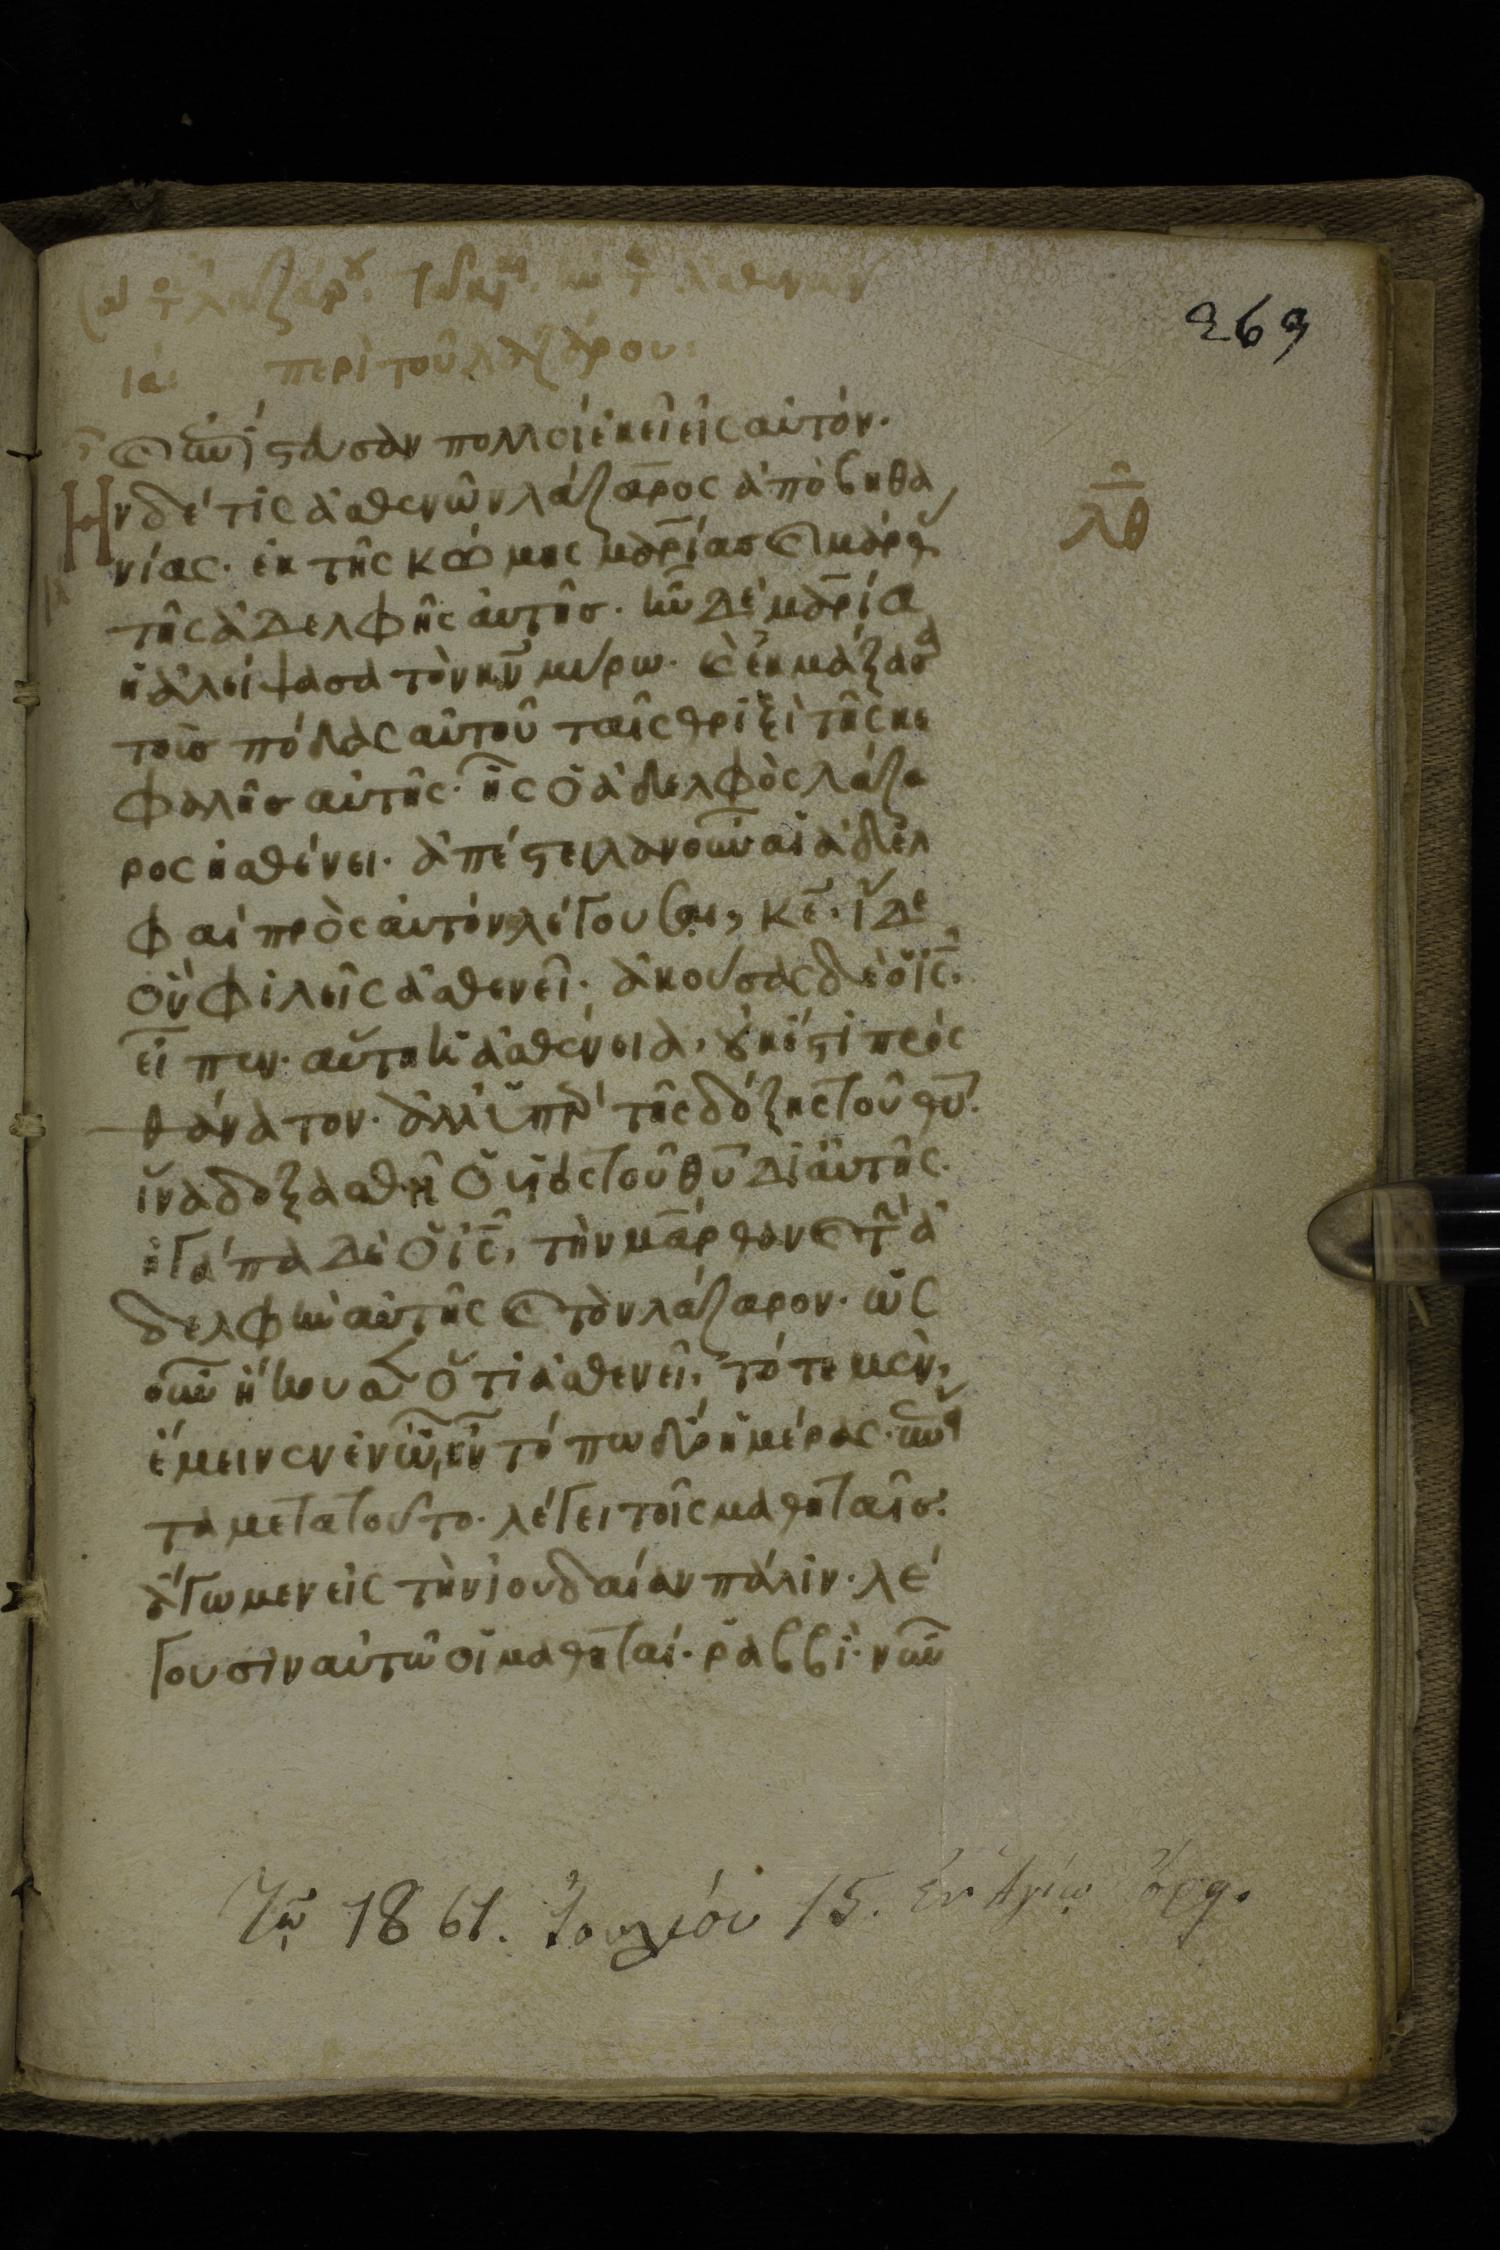 269
ια περὶ τοῦ λαζάρου:
ἐπίστευσαν πολλοὶ ἐκεῖ εἰς αὐτόν.
λθ
Ην δέ τις ἀσθενῶν λάζαρος ἀπὸ βηθα
νίας. ἐκ τῆς κώμης μαρίας καὶ μάρθας
τῆς ἀδελφῆς αὐτῆς. ἦν δὲ μαρία
ἡ ἀλείψασα τὸν κν μύρω. καὶ ἐκμάξασα
τοὺς πόδας αὐτοῦ ταῖς θριξὶ τῆς κε
φαλῆς αὐτῆς. ἧς ὁ ἀδελφὸς λάζα
ρος ἠσθένει. ἀπέστειλαν οὖν αἱ ἀδελ
φαὶ πρὸς αὐτὸν λέγουσαι, κε. ἴδε
ὃν φιλεῖς ἀσθενεῖ. ἀκούσας δὲ ὁ ις.
εἶπεν. αὕτη ἡ ἀσθένεια, οὐκ ἔστι πρὸς
θάνατον. ἀλλ' ὑπὲρ τῆς δόξης τοῦ θυ.
ἵνα δοξασθῆ ὁ υἱὸς τοῦ θυ δι αὐτῆς.
ἠγάπα δὲ ὁ ις, τὴν μάρθαν καὶ τὴν ἀ
δελφὴν αὐτῆς καὶ τὸν λάζαρον. ὡς
οὖν ἤκουσεν ὅτι ἀσθενεῖ, τότε μὲν,
ἔμεινεν ἐν ὧ ἦν τόπω δύο ἡμέρας. ἔπει
τα μετὰ τοῦτο. λέγει τοῖς μαθηταῖς.
ἄγωμεν εἰς τὴν ἰουδαίαν πάλιν. λέ
γουσιν αὐτῶ οἱ μαθηταί. ῥαββί. νῦν
Τῷ 1861. Ἰουλίου 15. ἐν Ἁγίῳ Ὄρει.